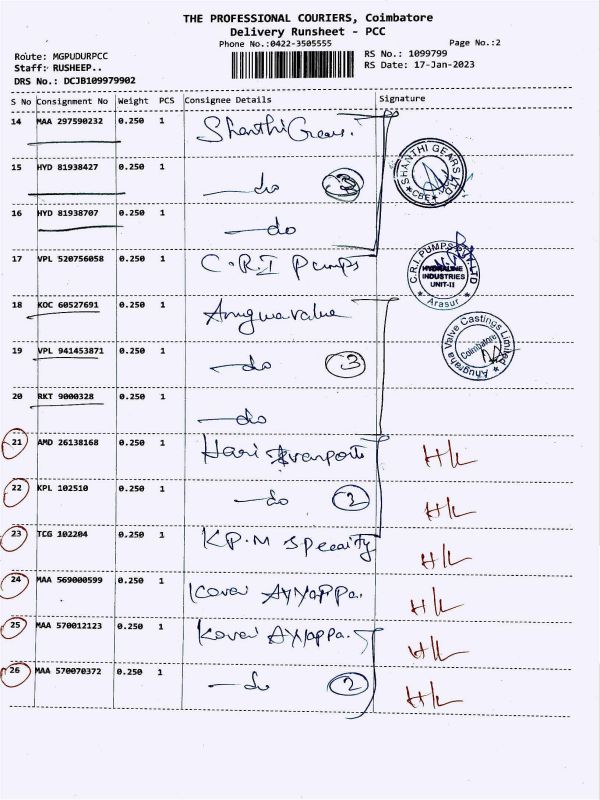 THE PROFESSIONAL COURIERS, Coimbatore
Delivery Runsheet - PCC
Phone No.:0422-3505555 Page No.:2
Route: MGPUDURPCC RS No.: 1099799
Staff: RUSHEEP.. RS Date: 17-Jan-2023
DRS No.: DCJB109979902
S No Consignment No Weight PCS Consignee Details Signature
14 MAA 297590232 0.250 1 Shanthi Gears.
SHANTHI GEARS LTD CBE
15 HYD 81938427 0.250 1 —do 3
16 HYD 81938707 0.250 1 —do
17 VPL 520756058 0.250 1 C.R.I Pumps
C.R.I. PUMPS PVT LTD HYDRALINE INDUSTRIES UNIT-II Arasur
18 KOC 60527691 0.250 1
Anugraha Valve Castings Limited Coimbatore
19 VPL 941453871 0.250 1 —do 3
20 RKT 9000328 0.250 1 —do
21 AMD 26138168 0.250 1 Hari H/L
22 KPL 102510 0.250 1 —do 2 H/L
23 TCG 102204 0.250 1 K.P.M H/L
24 MAA 569000599 0.250 1 Kovai Ayyappa. H/L
25 MAA 570012123 0.250 1 Kovai Ayyappa. H/L
26 MAA 570070372 0.250 1 —do 2 H/L